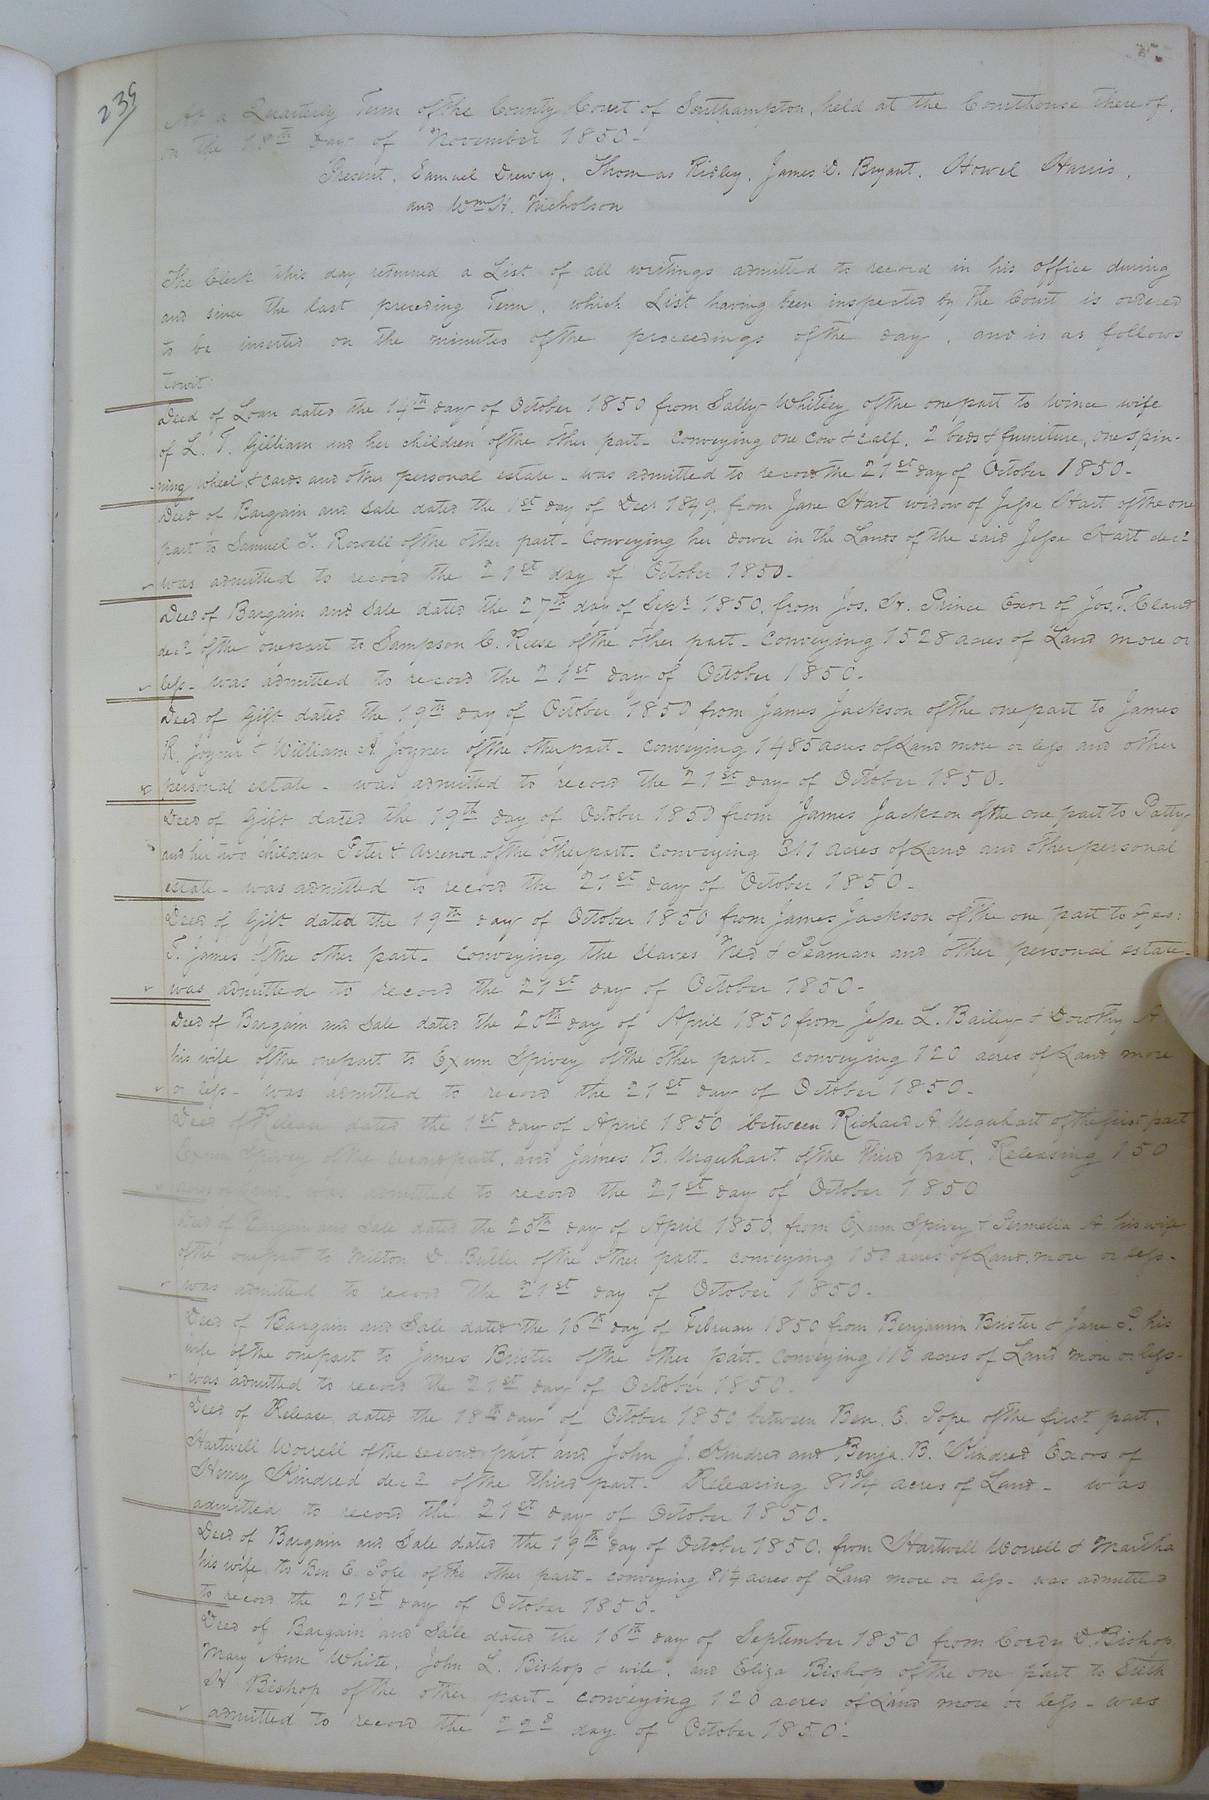 239
At a Quarterly Term of the County Court of Southampton, held at the Courthouse thereof,
on the 18th Day of November 1850-
Present, Samuel Drewry, Thomas Ridley, James D. Bryant, Howel Harris,
and Wm H. Nicholson
The Clerk this day returned a List of all writings admitted to record in his office during
and since the last preceding Term, which List having been inspected by the Court is ordered
to be inserted on the minutes of the proceedings of the day, and is as follows
towit:
Deed of Loan dated the 14th day of October 1850 from Sally Whitley of the one part to Wince wife
of L. T. Gilliam and her children of the other part- conveying one cow & calf, 2 beds & furniture, one spin-
ning wheel & cards and other personal estate- was admitted to record the 21st day of October 1850-
Deed of Bargain and Sale dated the 1st day of Decr 1849, from Jane Hart widow of Jesse Hart of the one
part to Samuel T. Rowell of the other part- Conveying her dower in the Lands of the said Jesse Hart decd
was admitted to record the 21st day of October 1850-
Deed of Bargain and Sale dated the 27th day of Sepr 1850, from Jos. H. Prince Exor of Jos. T. Claud
decd of the one part to Sampson C. Reese of the other part- conveying 1528 acres of Land more or
less- was admitted to record the 21st day of October 1850-
Deed of Gift dated the 19th day of October 1850 from James Jackson of the one part to James
R. Joyner & William A Joyner of the other part- conveying 1485 acres of Land more or less and other
personal estate- was admitted to record the 21st day of October 1850-
Deed of Gift dated the 19th day of October 1850 from James Jackson of the one part to Patty
and her two children Peter & Arrenor of the other part- conveying 311 acres of Land and other personal
estate- was admitted to record the 21st day of October 1850-
Deed of Gift dated the 19th day of October 1850 from James Jackson of the one part to Geo:
T. James of the other part- conveying the slaves Ned & Seaman and other personal estate-
was admitted to record the 21st day of October 1850-
Deed of Bargain and Sale dated the 20th day of April 1850 from Jesse L. Bailey & Dorothy A
his wife of the one part to Exum Spivey of the other part- conveying 120 acres of Land more
or less- was admitted to record the 21st day of October 1850-
Deed of Release dated the 1st day of April 1850 between Richard A. Urquhart of the first part
Exum Spivey of the second part, and James B. Urquhart of the third part, Releasing 150
was admitted to record the 21st day of October 1850
Deed of Bargain and Sale dated the 25th day of April 1850, from Exum Spivey & Permelia A his wife
of the one part to Milton D. Butler of the other part- conveying 150 acres of Land, more or less-
was admitted to record the 21st day of October 1850-
Deed of Bargain and Sale dated the 16th day of Februar 1850 from Benjamin Brister & Jane P. his
wife of the one part to James Brister of the other part- conveying 110 acres of Land more or less-
was admitted to record the 21st day of October 1850.
Deed of Release, dated the 18th day of October 1850 between Ben. E. Pope of the first part,
Hartwell Worrell of the second part and John J. Kindred and Benja. B. Kindred Exors of
Henry Kindred decd of the third part- Releasing 81¾ acres of Land- was
admitted to record the 21st day of October 1850-
Deed of Bargain and Sale dated the 19th day of October 1850, from Hartwell Worrell & Martha
his wife, to Ben E. Pope of the other part- conveying 81¾ acres of Land more or less- was admitted
to record the 21st day of October 1850-
Deed of Bargain and Sale dated the 16th day of September 1850 from Cordy D. Bishop
Mary Ann White, John L. Bishop & wife, and Eliza Bishop of the one part to Seth
H Bishop of the other part- conveying 120 acres of Land more or less- was
admitted to record the 22d day of October 1850-